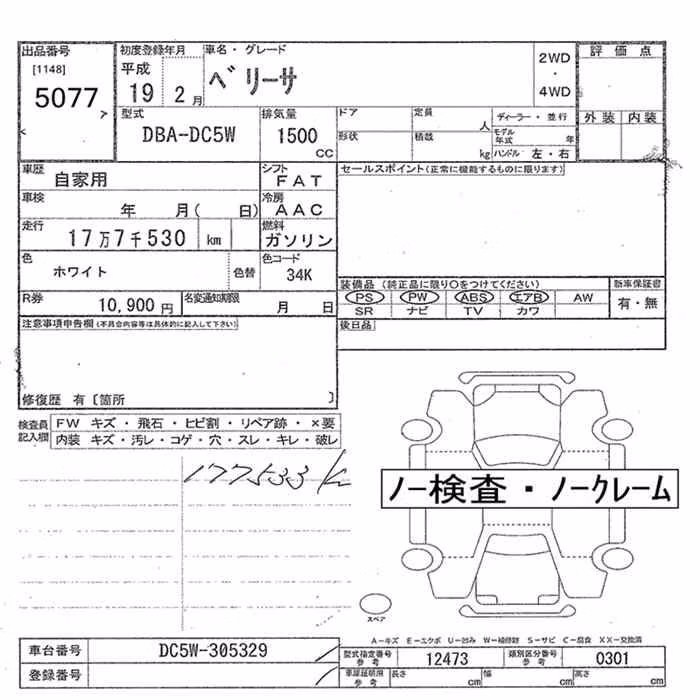 出品番号
[1148]
5077
初度登録年月
平成
19 2月
車名・グレード
ベリーサ
2WD
・
4WD
評価点
外装 内装
型式
DBA-DC5W
排気量
1500
CC
ドア
形状
定員
人
積載
kg
ディーラー・並行
モデル年式 年
ハンドル 左・右
車歴
自家用
シフト
FAT
車検
年 月( 日)
冷房
AAC
走行
17万7千530 km
燃料
ガソリン
色
ホワイト
色替
色コード
34K
R券
10,900円
名変通知期限
月 日
セールスポイント(正常に機能するものに限ります)
装備品 (純正品に限り○をつけてください)
PS PW ABS エアB AW
SR ナビ TV カワ
新車保証書
有・無
後日品
注意事項申告欄(不具合内容等は具体的に記入して下さい)
修復歴 有〔箇所 〕
検査員
記入欄
FW キズ・飛石・ヒビ割・リペア跡・×要
内装 キズ・汚レ・コゲ・穴・スレ・キレ・破レ
177533 km
ノー検査・ノークレーム
スペア
A-キズ E-エクボ U-凹み W-補修跡 S-サビ C-腐食 XX-交換済
車台番号
DC5W-305329
登録番号
型式指定番号
参考
12473
類別区分番号
参考
0301
車庫証明用
参考
長さ cm 幅 cm 高さ cm